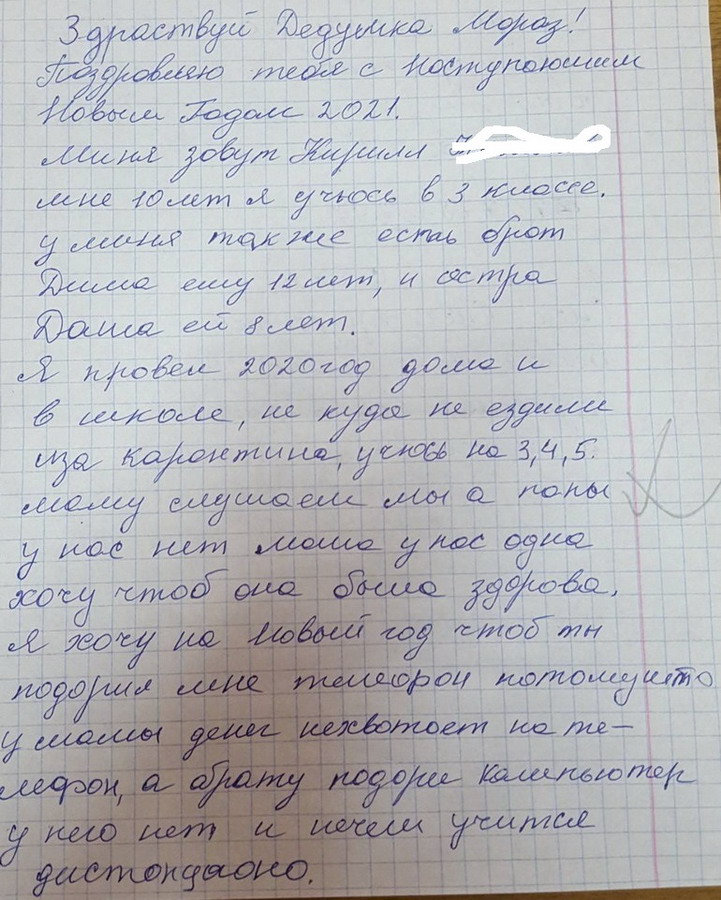 Здраствуй Дедушка Мороз!
Поздровляю тебя с Ноступоюшим
Новым Годом 2021.
Миня зовут Кирилл
мне 10 лет я учюсь в 3 классе.
у миня также есть брот
Дима ему 12 лет, и сестра
Даша ей 8 лет.
Я провел 2020 год дома и
в школе, не куда не ездили
иза коронтина, учюсь на 3,4,5.
маму слушаем мы а папы
у нас нет мама у нас одна
хочу чтоб она была здорова.
Я хочу на Новый год чтоб ты
подорил мне телефон потомушто
у мамы денег нехвотоет на те-
лефон, а брату подори компьютер
у него нет и нечем учится
дистонцаоно.